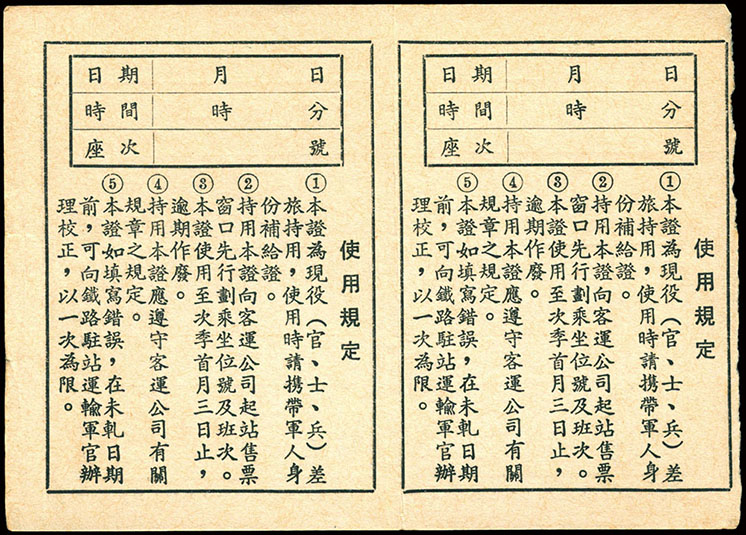 日期 月 日
時間 時 分
座次 號
使用規定
①本證為現役(官、士、兵)差
旅持用,使用時請携帶軍人身
份補給證。
②持用本證向客運公司起站售票
窗口先行劃乘坐位號及班次。
③本證使用至次季首月三日止,
逾期作廢。
④持用本證應遵守客運公司有關
規章之規定。
⑤本證如填寫錯誤,在未軋日期
前,可向鐵路駐站運輸軍官辦
理校正,以一次為限。
日期 月 日
時間 時 分
座次 號
使用規定
①本證為現役(官、士、兵)差
旅持用,使用時請携帶軍人身
份補給證。
②持用本證向客運公司起站售票
窗口先行劃乘坐位號及班次。
③本證使用至次季首月三日止,
逾期作廢。
④持用本證應遵守客運公司有關
規章之規定。
⑤本證如填寫錯誤,在未軋日期
前,可向鐵路駐站運輸軍官辦
理校正,以一次為限。